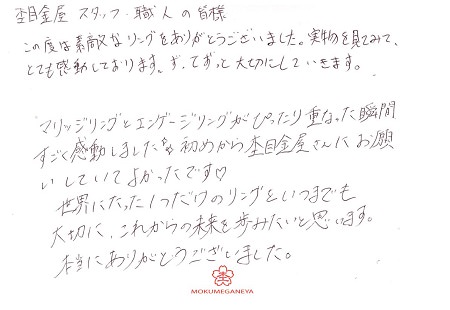 杢目金屋 スタッフ・職人の皆様
この度は素敵なリングをありがとうございました。実物を見てみて、
とても感動しております。ずってずっと大切にしていきます。
マリッジリングとエンゲージリングがぴったり重なった瞬間
すごく感動しました☆ 初めから杢目金屋さんにお願
いしていてよかったです♡
世界にたった1つだけのリングといつまでも
大切に、これからの未来を歩みたいと思います。
本当にありがとうございました。
MOKUMEGANEYA